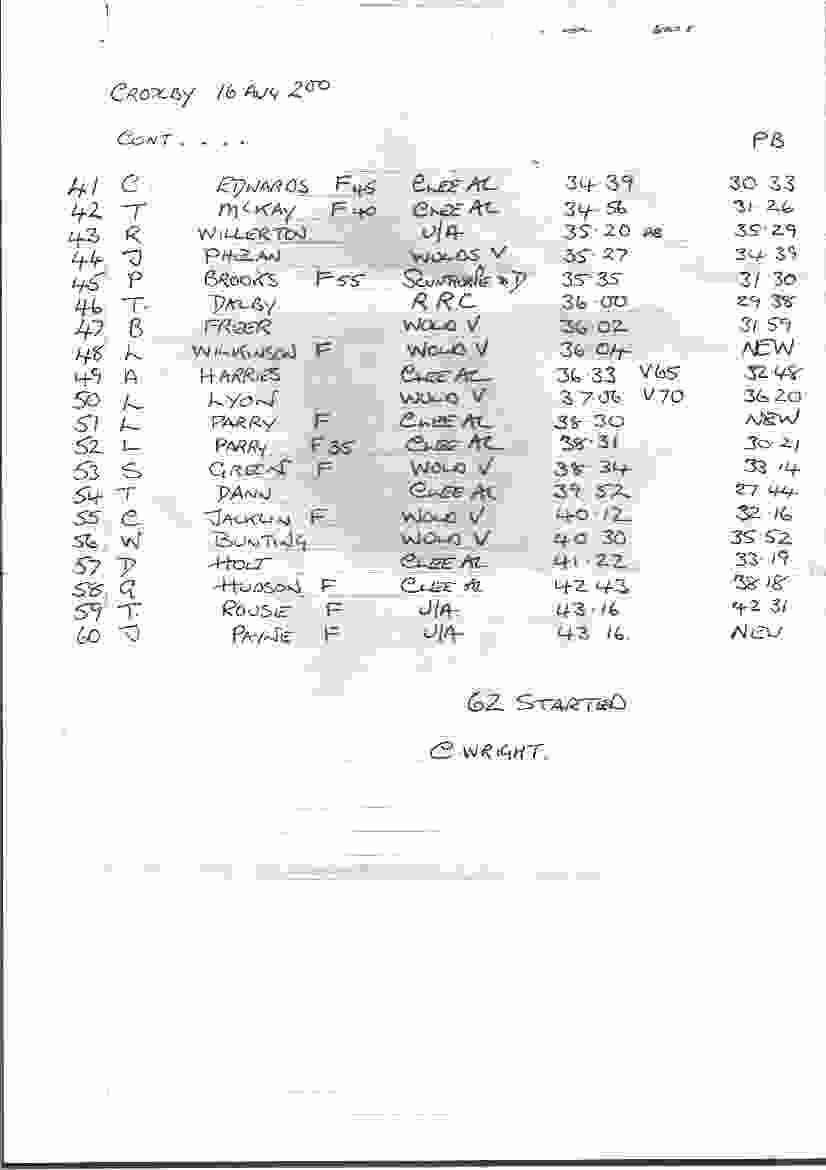 CROXBY 16 AUG 200
CONT.... PB
41 C EDWARDS F45 CLEE AC 34·39 30 33
42 T MCKAY F40 CLEE AC 34·56 31·26
43 R WILLERTON U/A 35·20 PB 35·29
44 J PHIZAN WOLDS V 35·27 34 39
45 P BROOKS F55 SCUNTHORPE & D 35·35 31 30
46 T. DALBY R R C 36·00 29 38
47 B FREER WOLD V 36·02 31 59
48 L WILKINSON F WOLD V 36 04 NEW
49 A HARRIES CLEE AC 36·33 V65 32·48
50 L LYON WOLD V 37·06 V70 36 20
51 L PARRY F CLEE AC 38·30 NEW
52 L PARRY F35 CLEE AC 38·31 30·21
53 S GREEN F WOLD V 38·34 33 14
54 T DANN CLEE AC 39 52 27 44
55 C JACKLIN F WOLD V 40·12 32·16
56 W BUNTING WOLD V 40 30 35·52
57 D HOLT CLEE AC 41·22 33·19
58 G HUDSON F CLEE AC 42 43 38·18
59 T. ROUSE F U/A 43·16 42 31
60 J PAYNE F U/A 43 16. NEW
62 STARTED
C·WRIGHT.